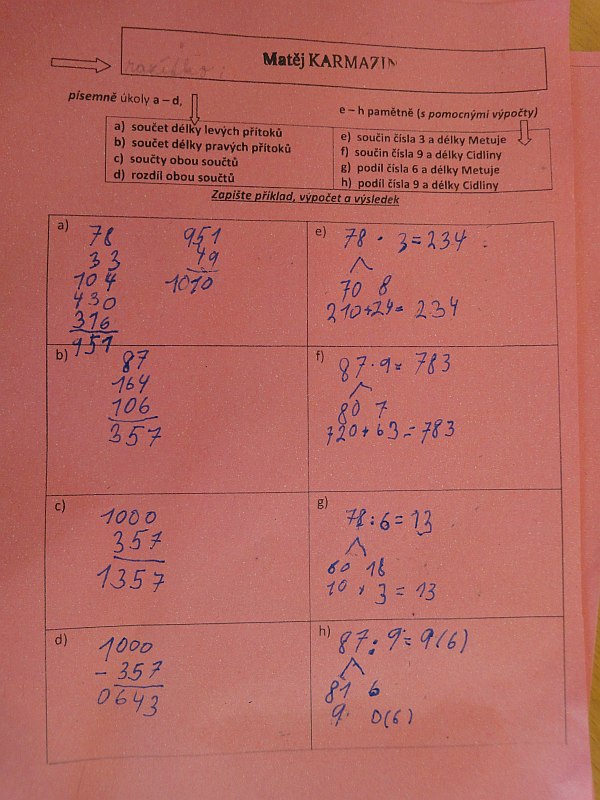 Matěj KARMAZIN
písemně úkoly a – d,
e – h pamětně (s pomocnými výpočty)
a) součet délky levých přítoků
b) součet délky pravých přítoků
c) součty obou součtů
d) rozdíl obou součtů
e) součin čísla 3 a délky Metuje
f) součin čísla 9 a délky Cidliny
g) podíl čísla 6 a délky Metuje
h) podíl čísla 9 a délky Cidliny
Zapište příklad, výpočet a výsledek
a)
78
33
104
430
316
951
951
49
1010
b)
87
164
106
357
c)
1000
357
1357
d)
1000
- 357
0643
e)
78 · 3 = 234
70 8
210+24= 234
f)
87 · 9 = 783
80 7
720+63=783
g)
78:6=13
60 18
10 + 3 = 13
h)
87 : 9 = 9(6)
81 6
9 0(6)